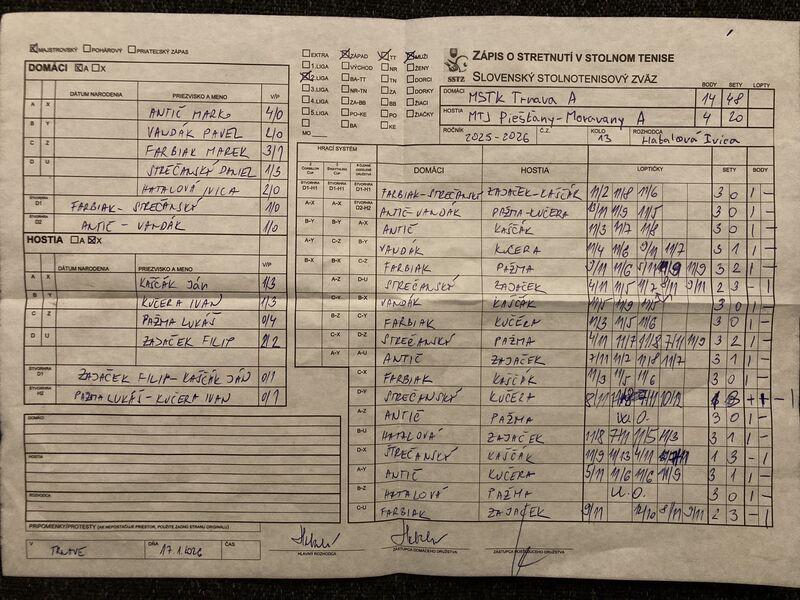 MAJSTROVSKÝ POHÁROVÝ PRIATEĽSKÝ ZÁPAS
DOMÁCI A X
DÁTUM NARODENIA PRIEZVISKO A MENO V/P
A X ANTIČ MARKO 4/0
B Y VANDÁK PAVEL 2/0
C Z FARBIAK MAREK 3/1
D U STREČANSKÝ DANIEL 1/3
HATALOVÁ IVICA 2/0
ŠTVORHRA D1 FARBIAK - STREČANSKÝ 1/0
ŠTVORHRA D2 ANTIČ - VANDÁK 1/0
HOSTIA A X
DÁTUM NARODENIA PRIEZVISKO A MENO V/P
A X KAŠČÁK JÁN 1/3
B Y KUČERA IVAN 1/3
C Z PAŽMA LUKÁŠ 0/4
D U ZAJAČEK FILIP 2/2
ŠTVORHRA D1 ZAJAČEK FILIP - KAŠČÁK JÁN 0/1
ŠTVORHRA H2 PAŽMA LUKÁŠ - KUČERA IVAN 0/1
DOMÁCI
HOSTIA
ROZHODCA
PRIPOMIENKY/PROTESTY (AK NEPOSTAČUJE PRIESTOR, POUŽITE ZADNÚ STRANU ORIGINÁLU)
V TRNAVE DŇA 17.1.2026 ČAS
EXTRA ZÁPAD TT MUŽI
1.LIGA VÝCHOD NR ŽENY
2.LIGA BA-TT TN DORCI
3.LIGA NR-TN ZA DORKY
4.LIGA ZA-BB BB ŽIACI
5.LIGA PO-KE PO ŽIAČKY
MO BA KE
SSTZ
ZÁPIS O STRETNUTÍ V STOLNOM TENISE
SLOVENSKÝ STOLNOTENISOVÝ ZVÄZ
BODY SETY LOPTY
DOMÁCI MSTK Trnava A 14 48
HOSTIA MTJ Piešťany-Moravany A 4 20
ROČNÍK 2025-2026 Č.Z. KOLO 13 ROZHODCA Hatalová Ivica
HRACÍ SYSTÉM DOMÁCI HOSTIA LOPTIČKY SETY BODY
ŠTVORHRA D1-H1 ŠTVORHRA D1-H1 ŠTVORHRA D1-H1 FARBIAK-STREČANSKÝ ZAJAČEK-KAŠČÁK 11/2 11/8 11/6 3 0 1 -
A-X A-X ŠTVORHRA D2-H2 ANTIČ-VANDÁK PAŽMA-KUČERA 11/9 11/5 3 0 1 -
B-Y B-Y A-X ANTIČ KAŠČÁK 11/3 11/7 11/8 3 0 1 -
A-Y C-Z B-Y VANDÁK KUČERA 11/4 11/6 9/11 11/7 3 1 1 -
B-X B-X C-Z FARBIAK PAŽMA 9/11 11/6 5/11 11/9 11/9 3 2 1 -
A-Z D-U STREČANSKÝ ZAJAČEK 4/11 11/5 11/7 9/11 2 3 - 1
C-Y B-X VANDÁK KAŠČÁK 11/5 11/9 11/5 3 0 1 -
B-Z C-Y FARBIAK KUČERA 11/3 11/5 11/6 3 0 1 -
C-X D-Z STREČANSKÝ PAŽMA 4/11 11/7 11/8 7/11 11/9 3 2 1 -
A-Y A-U ANTIČ ZAJAČEK 7/11 11/2 11/8 11/7 3 1 1 -
C-X FARBIAK KAŠČÁK 11/9 11/5 11/6 3 0 1 -
D-Y STREČANSKÝ KUČERA 8/11 7/11 10/12 - 1
A-Z ANTIČ PAŽMA W.O. 3 0 1 -
B-U HATALOVÁ ZAJAČEK 11/8 7/11 11/5 11/3 3 1 1 -
D-X STREČANSKÝ KAŠČÁK 11/9 11/13 4/11 7/11 1 3 - 1
A-Y ANTIČ KUČERA 5/11 11/6 11/6 11/9 3 1 1 -
B-Z HATALOVÁ PAŽMA W.O. 3 0 1 -
C-U FARBIAK ZAJAČEK 9/11 12/10 8/11 9/11 2 3 - 1
HLAVNÝ ROZHODCA ZÁSTUPCA DOMÁCEHO DRUŽSTVA ZÁSTUPCA HOSŤUJÚCEHO DRUŽSTVA